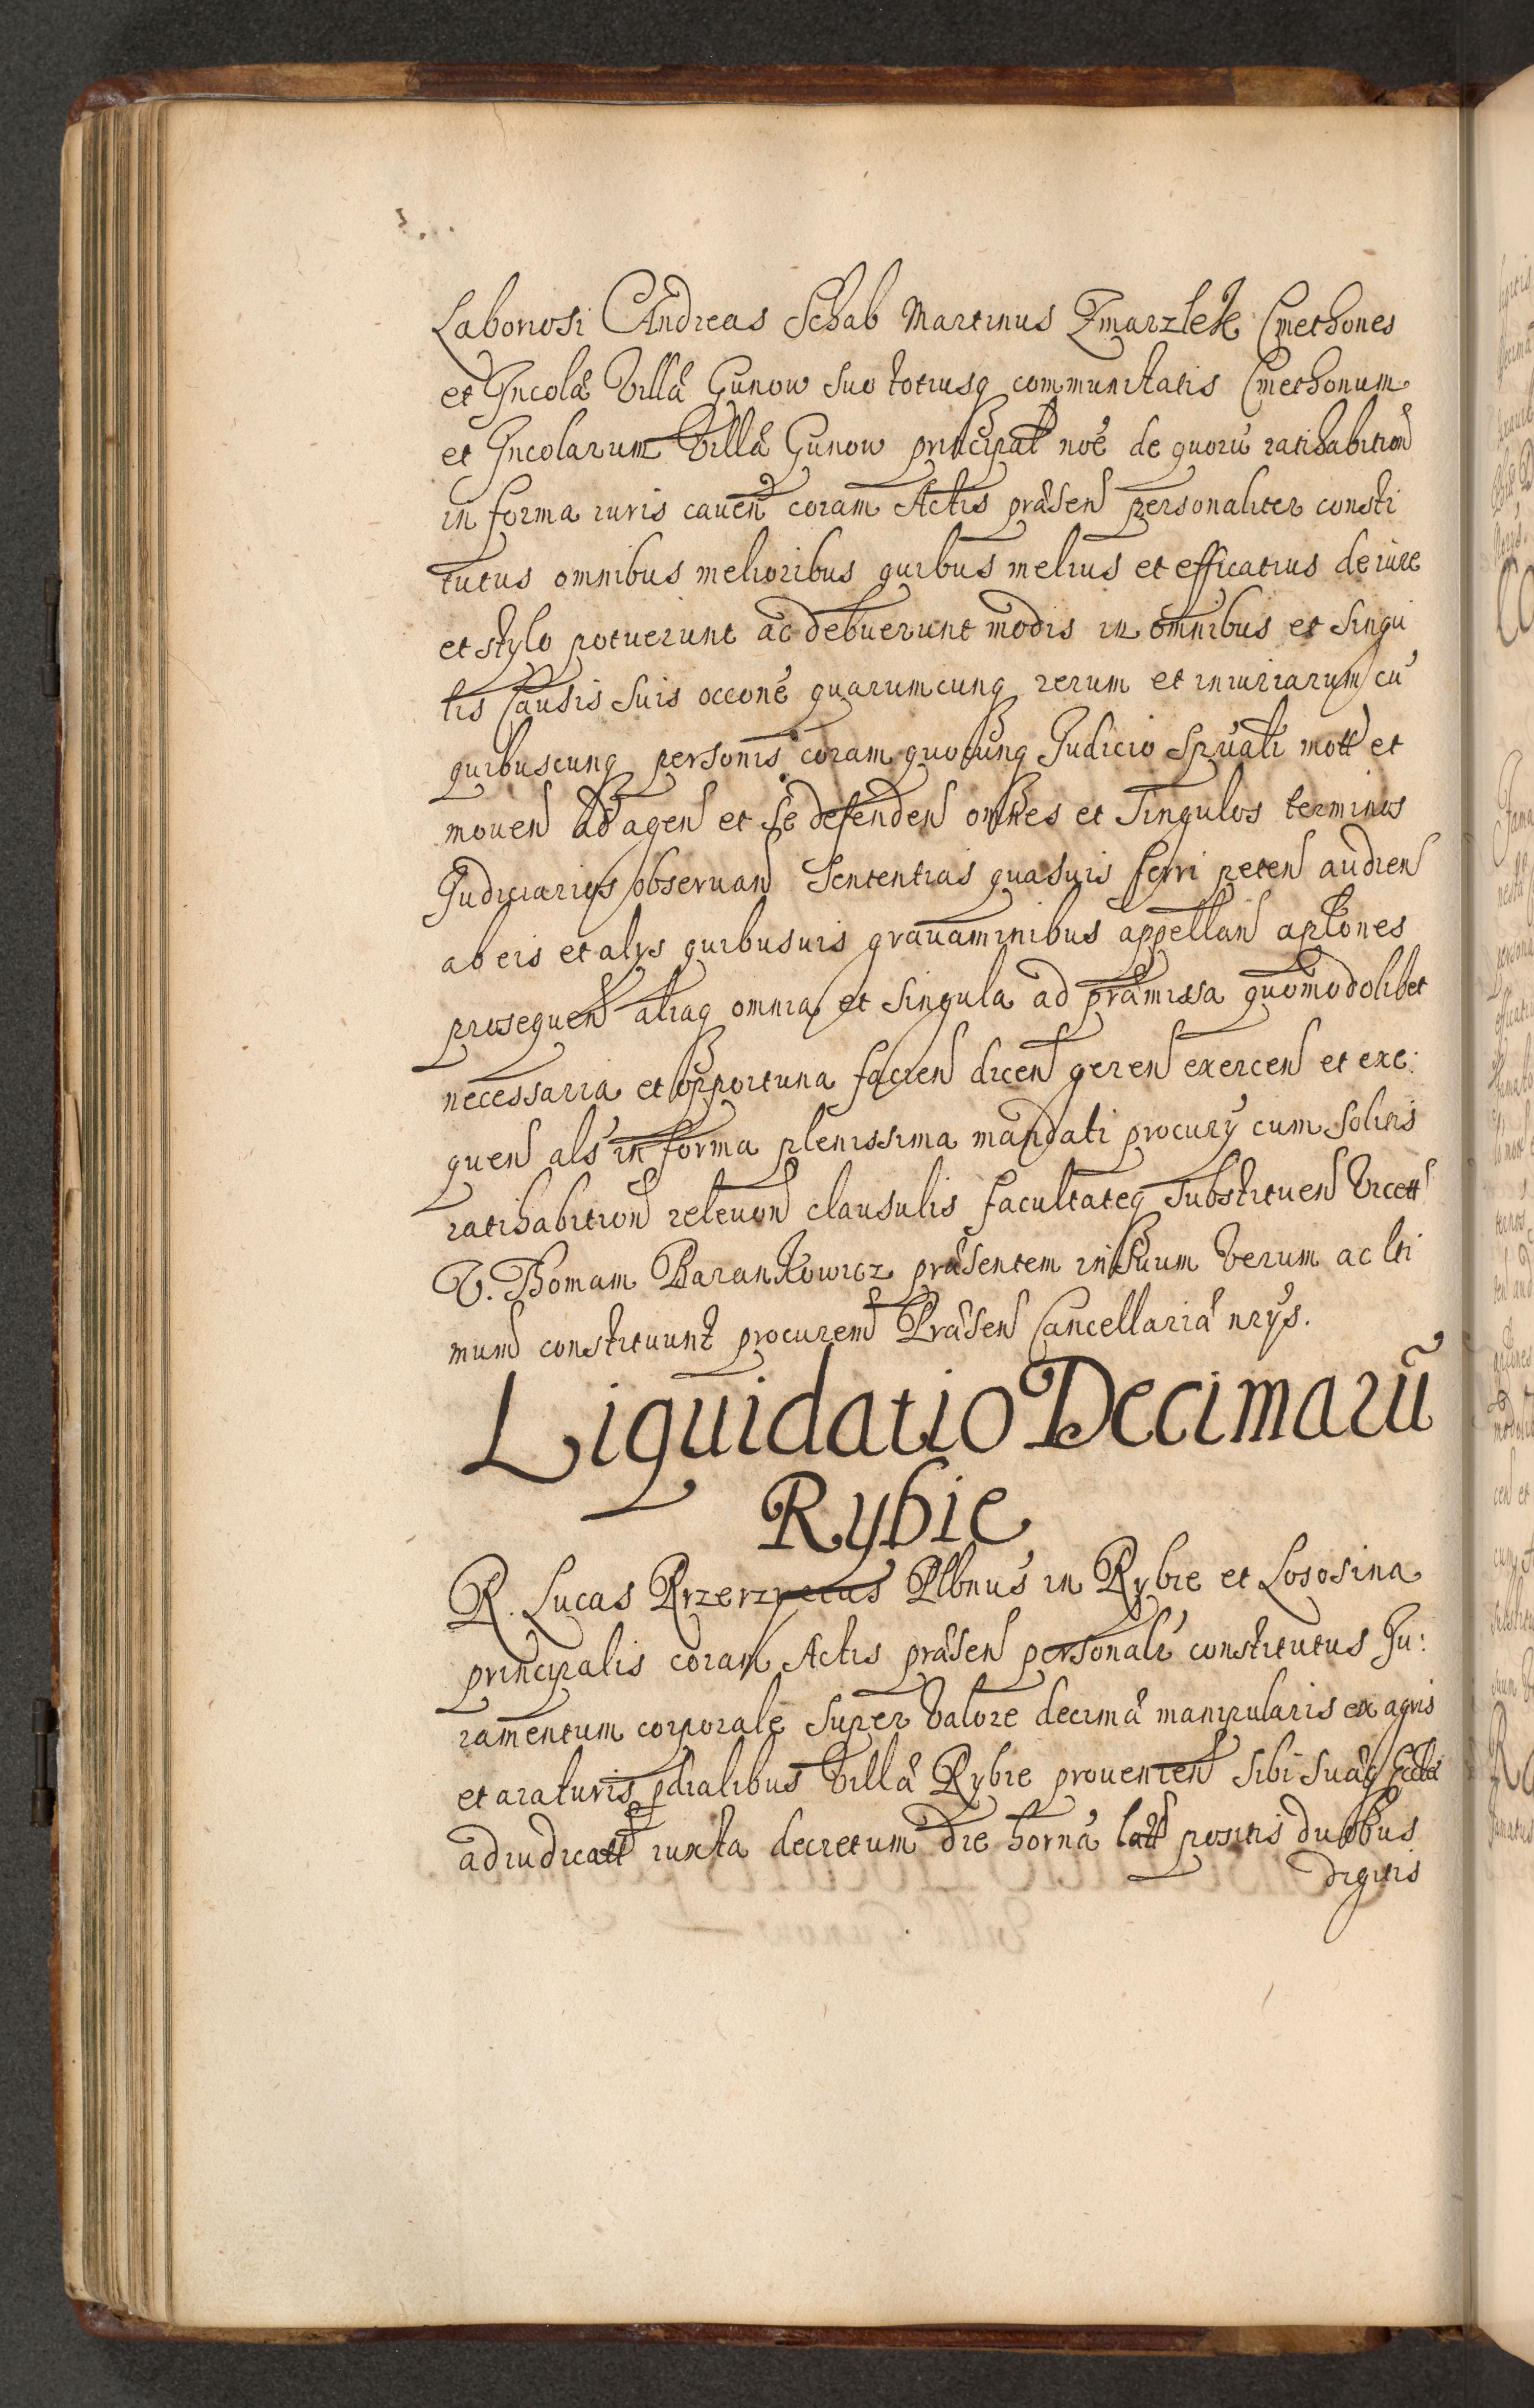 Laboriosi Andreas Schab Martinus Zmarzlek Cmethones
et Incolæ Villæ Gunow suo totiusq communitatis Cmethonum
et Incolarum Villæ Gunow principal noé de quorú ratihabition
in forma iuris caven coram Actis præsen personaliter consti
tutus omnibus melioribus quibus melius et efficatius de iure
et stylo potuerunt ac debuerunt modis in omnibus et singu
lis Causis suis occoné quarumcunq rerum et iniuriarum cú
quibuscunq personis coram quocunq Judicio Spúali mott et
moven ad agen et se defenden omnes et Singulos terminos
Judiciarios observan Sententias quasuis ferri peten audien
ab eis et alys quibusuis gravaminibus appellan aplones
prosequen aliaq omnia et singula ad præmissa quomodolibet
necessaria et opportuna facien dicen geren exercen et exe:
quen als in forma plenissima mandati procury cum solitis
ratihabition relevon clausulis facultateq substituen Vicett
V. Thomam Barankowicz præsentem in suum verum ac lti
mum constituunt procurem Præsen Cancellariæ nrys.
Liquidatio Decimarũ
Rybie
R. Lucas Plbnus in Rybie et Lososina
principalis coram Actis præsen personalr constitutus Ju:
ramentum corporale super valore decimæ manipularis ex agris
et araturis pdialibus Villæ Rybie provenien sibi suæq Ecclæ
adiudicatt iuxta decretum die horna latt positis duobus
digitis